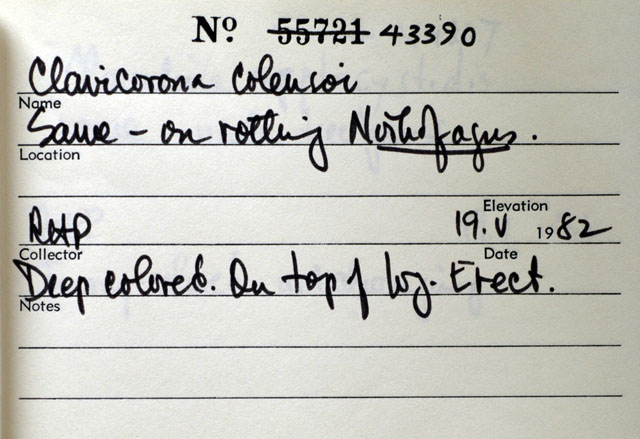 Nº 55721 43390
Clavicorona colensoi
Name
Same - on rotting Nothofagus.
Location
Elevation
RHP 19.V 1982
Collector Date
Deep colored. On top of log. Erect.
Notes